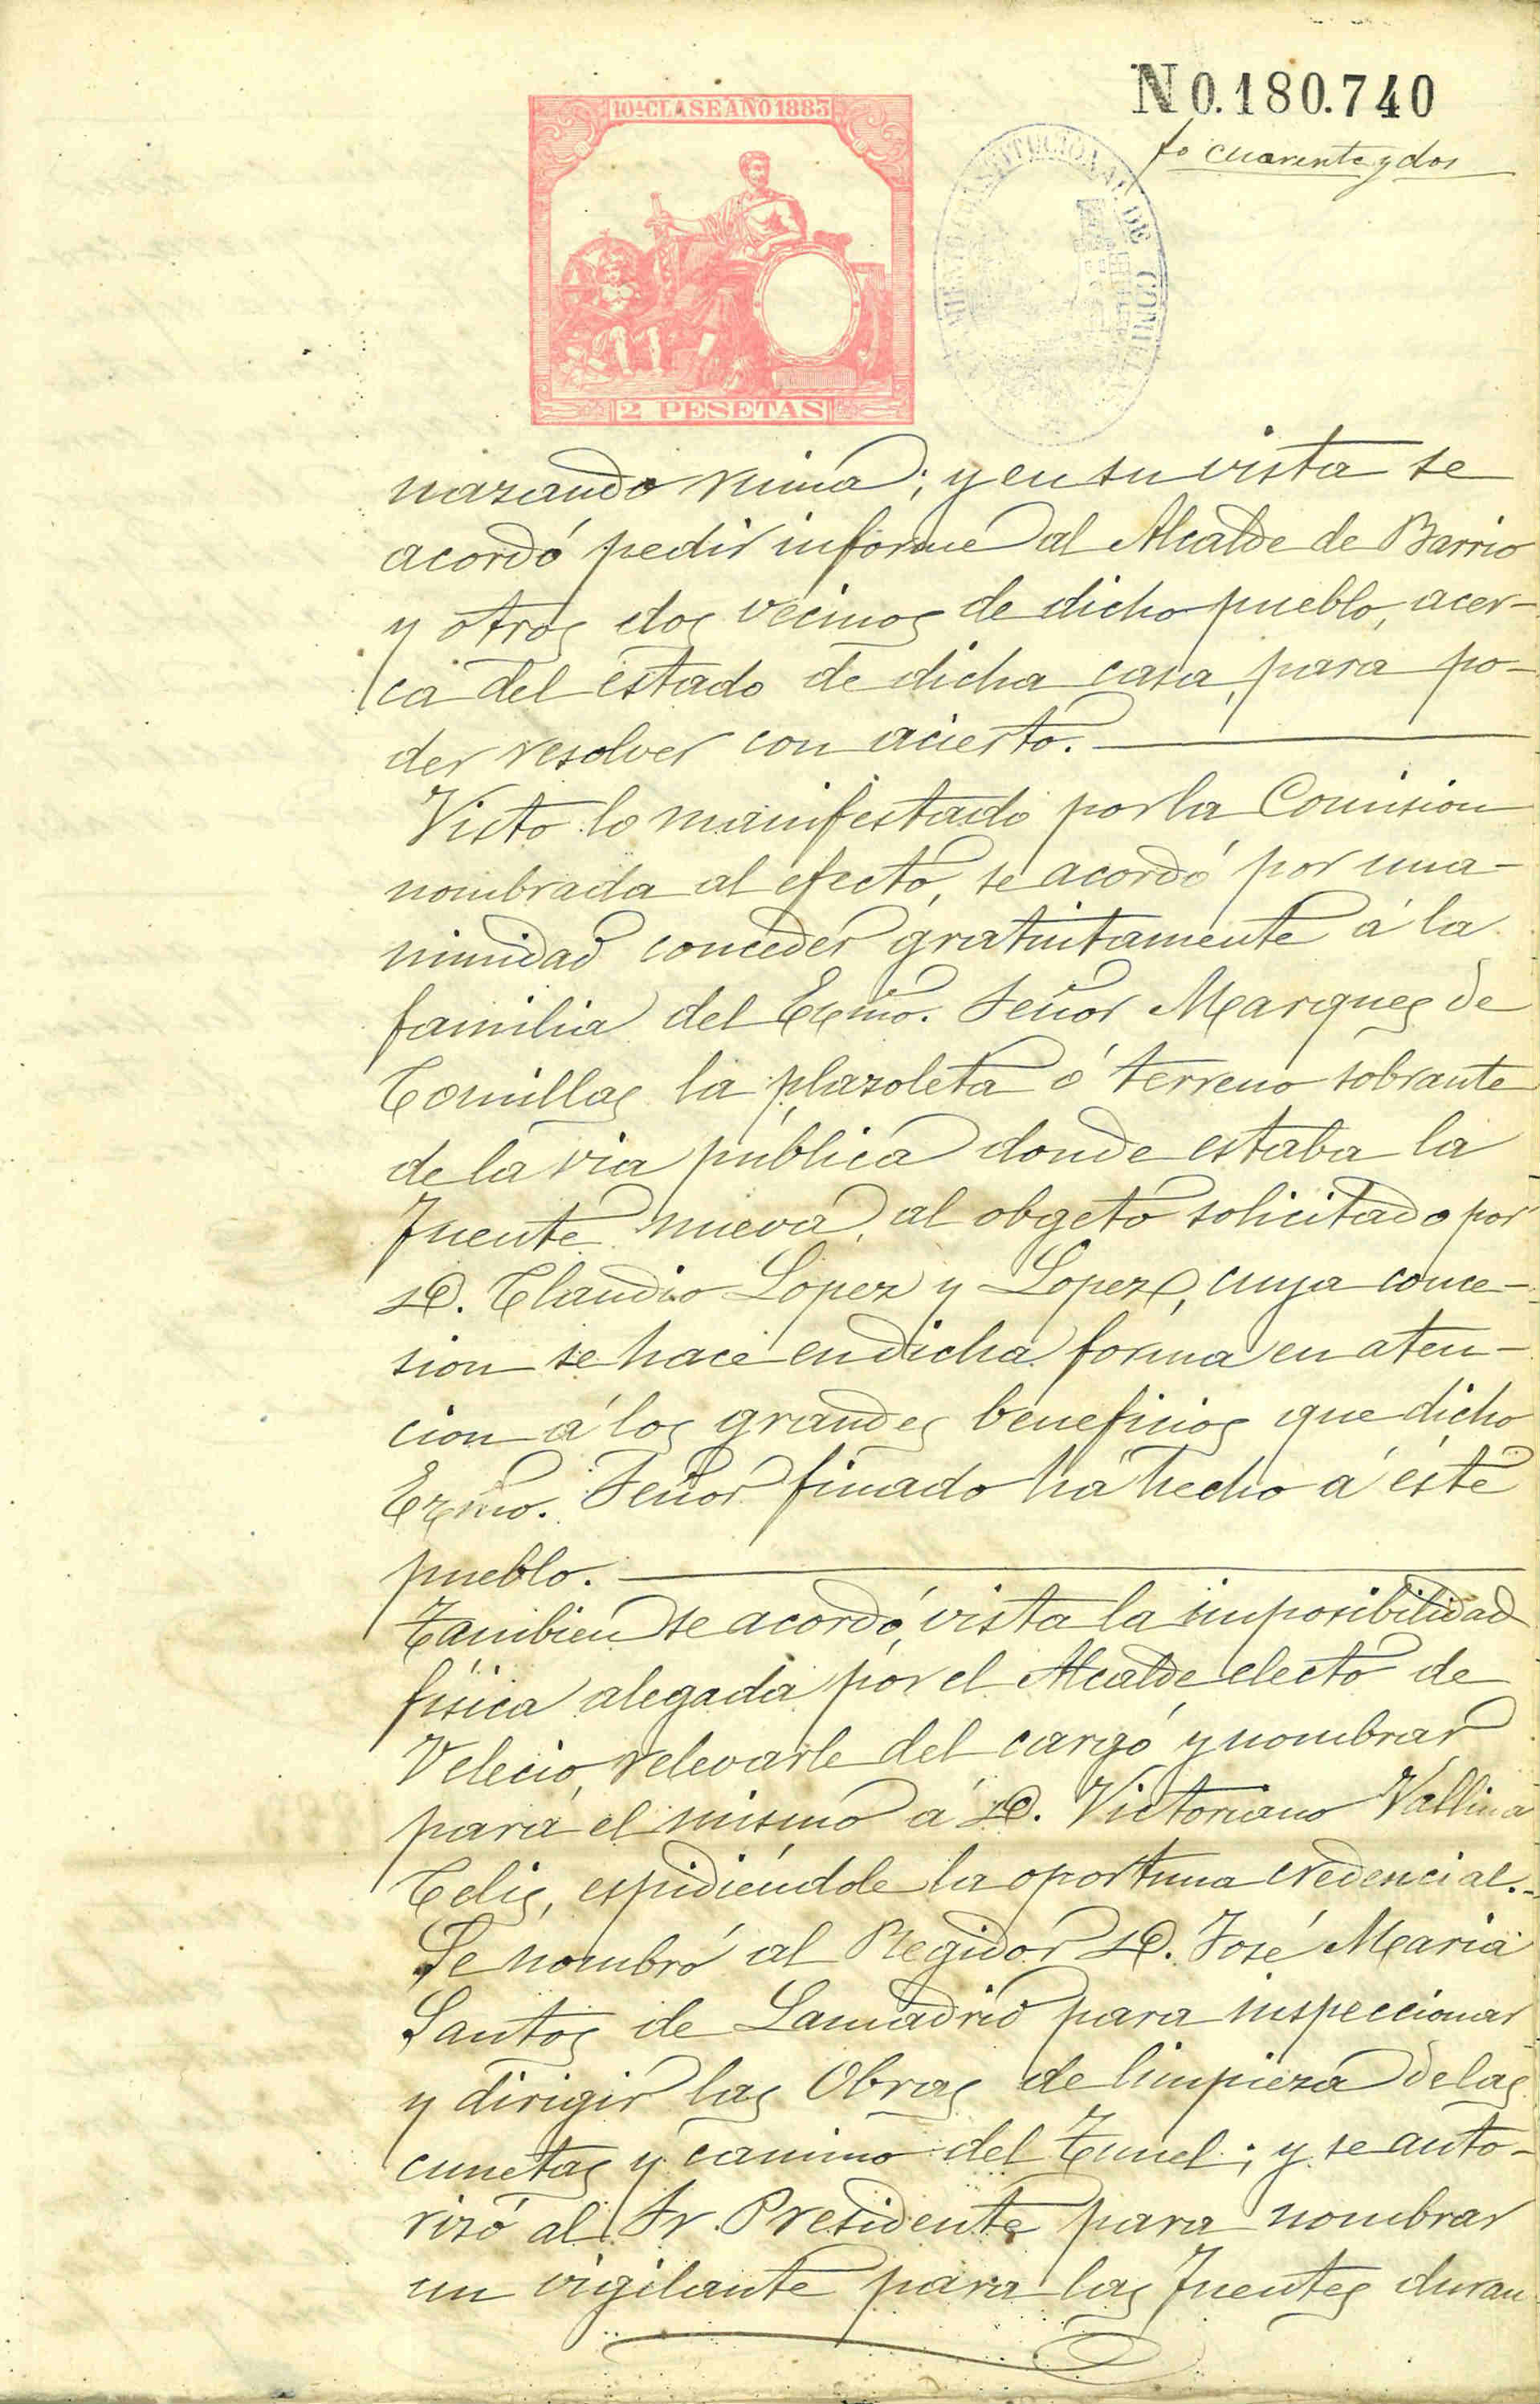 N0.180.740
10ª CLASE AÑO 1883
fo cuarenta y dos
CONSTITUCIONAL DE COMILLAS
2 PESETAS
nazando ruina; y en su vista se
acordó pedir informe al Alcalde de Barrio
y otros dos vecinos de dicho pueblo, acer-
ca del estado de dicha casa, para po-
der resolver con acierto.
Visto lo manifestado por la Comision
nombrada al efecto, se acordó por una-
nimidad conceder gratuitamente á la
familia del Excmo. Señor Marques de
Comillas la plazoleta ó terreno sobrante
de la via pública donde estaba la
Fuente nueva, al obgeto solicitado por
D. Claudio Lopez y Lopez, cuya conce-
sion se hace en dicha forma en aten-
cion á los grandes beneficios que dicho
Exmo. Señor finado há hecho á éste
pueblo.
Tambien se acordó, vista la imposibilidad
física alegada por el Alcalde electo de
Velecio, relevarle del cargo y nombrar
para el mismo á D. Victoriano Vallina
Celis, espidiéndole la oportuna credencial.-
Se nombró al Regidor D. José Maria
Santos de Lamadrid para inspeccionar
y dirigir las Obras de limpieza de las
cunetas y camino del Tunel; y se auto-
rizó al Sr. Presidente para nombrar
un vigilante para las Fuentes duran